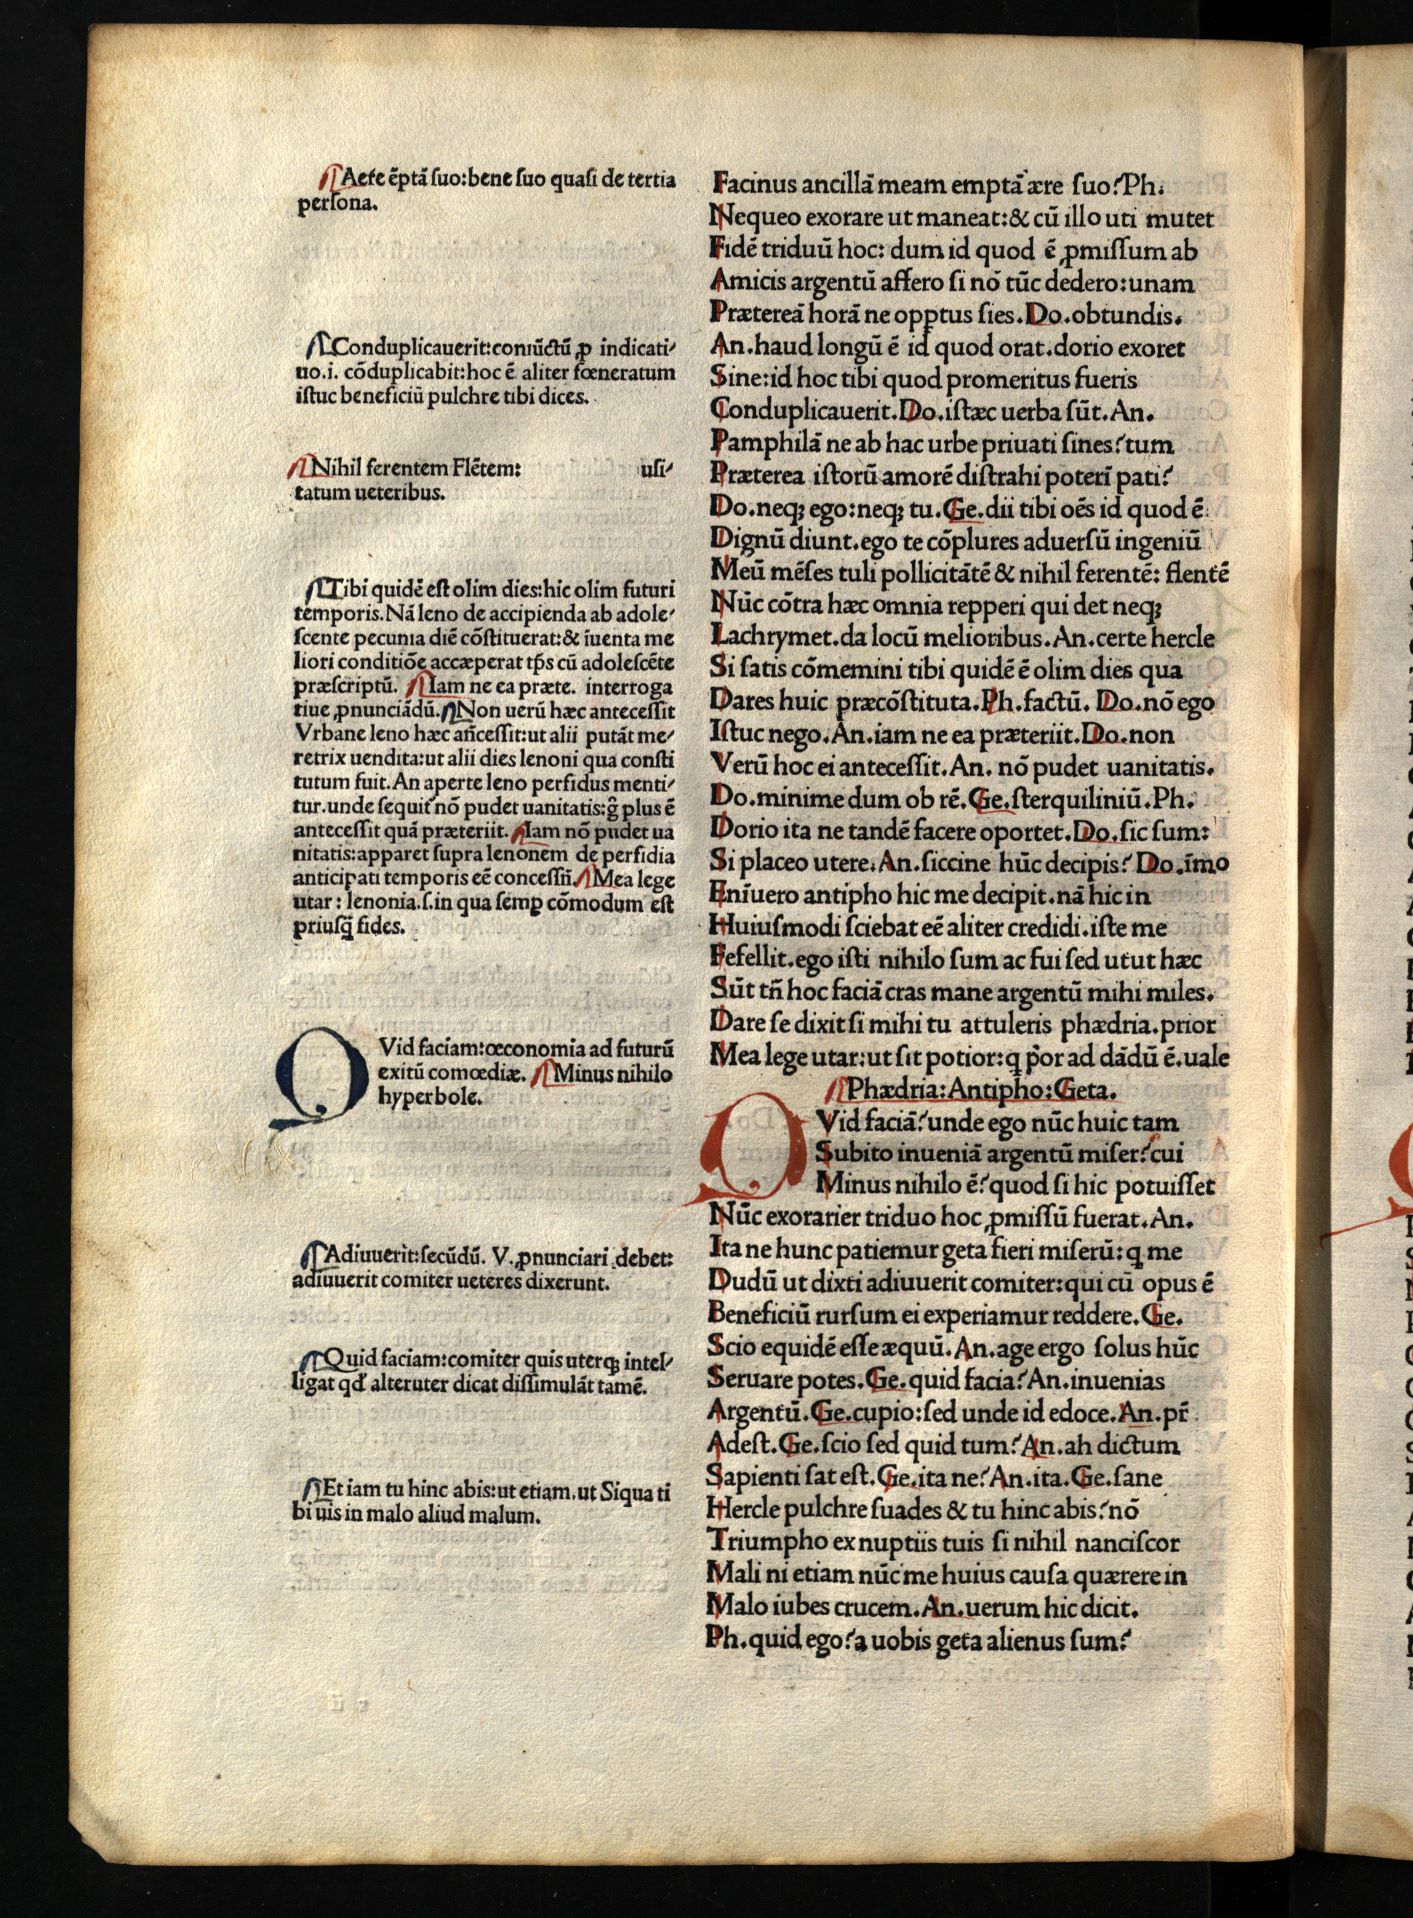 Aere ēptā ſuo:bene ſuo quaſi de tertia
perſona.
Conduplicauerit:coniūctū ꝓ indicati⸗
uo.i. cōduplicabit:hoc ē aliter fœneratum
iſtuc beneficiū pulchre tibi dices.
Nihil ferentem Flētem: uſi⸗
tatum ueteribus.
Tibi quidē eſt olim dies:hic olim futuri
temporis.Nā leno de accipienda ab adole⸗
ſcente pecunia diē cōſtituerat:& īuenta me
liori conditiōe accæperat tp̄s cū adoleſcēte
præſcriptū. Iam ne ea præte. interroga
tiue ꝓnunciādū. Non uerū hæc anteceſſit
Vrbane leno hæc an̄ceſſit:ut alii putāt me⸗
retrix uendita:ut alii dies lenoni qua conſti
tutum fuit.An aperte leno perfidus menti⸗
tur.unde ſequit̄ nō pudet uanitatis:g̃ plus ē
anteceſſit quā præteriit. Iam nō pudet ua
nitatis:apparet ſupra lenonem de perfidia
anticipati temporis eē conceſſū̄. Mea lege
utar: lenonia.ſ.in qua ſemꝑ cōmodum eſt
priuſq̄ fides.
QVid faciam:œconomia ad futurū
exitū comœdiæ. Minus nihilo
hyperbole.
Adiuuerit:ſecūdū. V. ꝓnunciari debet:
adiuuerit comiter ueteres dixerunt.
Quid faciam:comiter quis uterq; intel⸗
ligat qđ alteruter dicat diſſimulāt tamē.
Et iam tu hinc abis:ut etiam.ut Siqua ti
bi uis in malo aliud malum.
Facinus ancillā meam emptā ære ſuo? Ph.
Nequeo exorare ut maneat:& cū illo uti mutet
Fidē triduū hoc: dum id quod ē ꝓmiſſum ab
Amicis argentū affero ſi nō tūc dedero:unam
Prætereā horā ne opꝑtus ſies.Do.obtundis.
An.haud longū ē id quod orat.dorio exoret
Sine:id hoc tibi quod promeritus fueris
Conduplicauerit.Do.iſtæc uerba ſūt.An.
Pamphilā ne ab hac urbe priuati ſines? tum
Præterea iſtorū amorē diſtrahi poterī pati?
Do.neq; ego:neq; tu.Ge.dii tibi oēs id quod ē
Dignū diunt.ego te cōplures aduerſū ingeniū
Meū mēſes tuli pollicitātē & nihil ferentē: flentē
Nūc cōtra hæc omnia repperi qui det neq;
Lachrymet.da locū melioribus.An.certe hercle
Si ſatis cōmemini tibi quidē ē olim dies qua
Dares huic præcōſtituta.Ph.factū. Do.nō ego
Iſtuc nego.An.iam ne ea præteriit.Do.non
Verū hoc ei anteceſſit.An. nō pudet uanitatis.
Do.minime dum ob rē.Ge.ſterquiliniū.Ph.
Dorio ita ne tandē facere oportet.Do.ſic ſum:
Si placeo utere.An.ſiccine hūc decipis? Do.īmo
Enīuero antipho hic me decipit.nā hic in
Huiuſmodi ſciebat eē aliter credidi.iſte me
Fefellit.ego iſti nihilo ſum ac fui ſed utut hæc
Sūt tn̄ hoc faciā cras mane argentū mihi miles.
Dare ſe dixit ſi mihi tu attuleris phædria.prior
Mea lege utar:ut ſit potior:q p̄or ad dādū ē.uale
Phædria:Antipho:Geta.
QVid faciā? unde ego nūc huic tam
Subito inueniā argentū miſer? cui
Minus nihilo ē? quod ſi hic potuiſſet
Nūc exorarier triduo hoc ꝓmiſſū fuerat.An.
Ita ne hunc patiemur geta fieri miſerū: q me
Dudū ut dixti adiuuerit comiter:qui cū opus ē
Beneficiū rurſum ei experiamur reddere.Ge.
Scio equidē eſſe æquū.An.age ergo ſolus hūc
Seruare potes.Ge.quid facia? An.inuenias
Argentū.Ge.cupio:ſed unde id edoce.An.pr̄
Adeſt.Ge.ſcio ſed quid tum? An.ah dictum
Sapienti ſat eſt.Ge.ita ne? An.ita.Ge.ſane
Hercle pulchre ſuades & tu hinc abis? nō
Triumpho ex nuptiis tuis ſi nihil nanciſcor
Mali ni etiam nūc me huius cauſa quærere in
Malo iubes crucem.An.uerum hic dicit.
Ph.quid ego? a uobis geta alienus ſum?